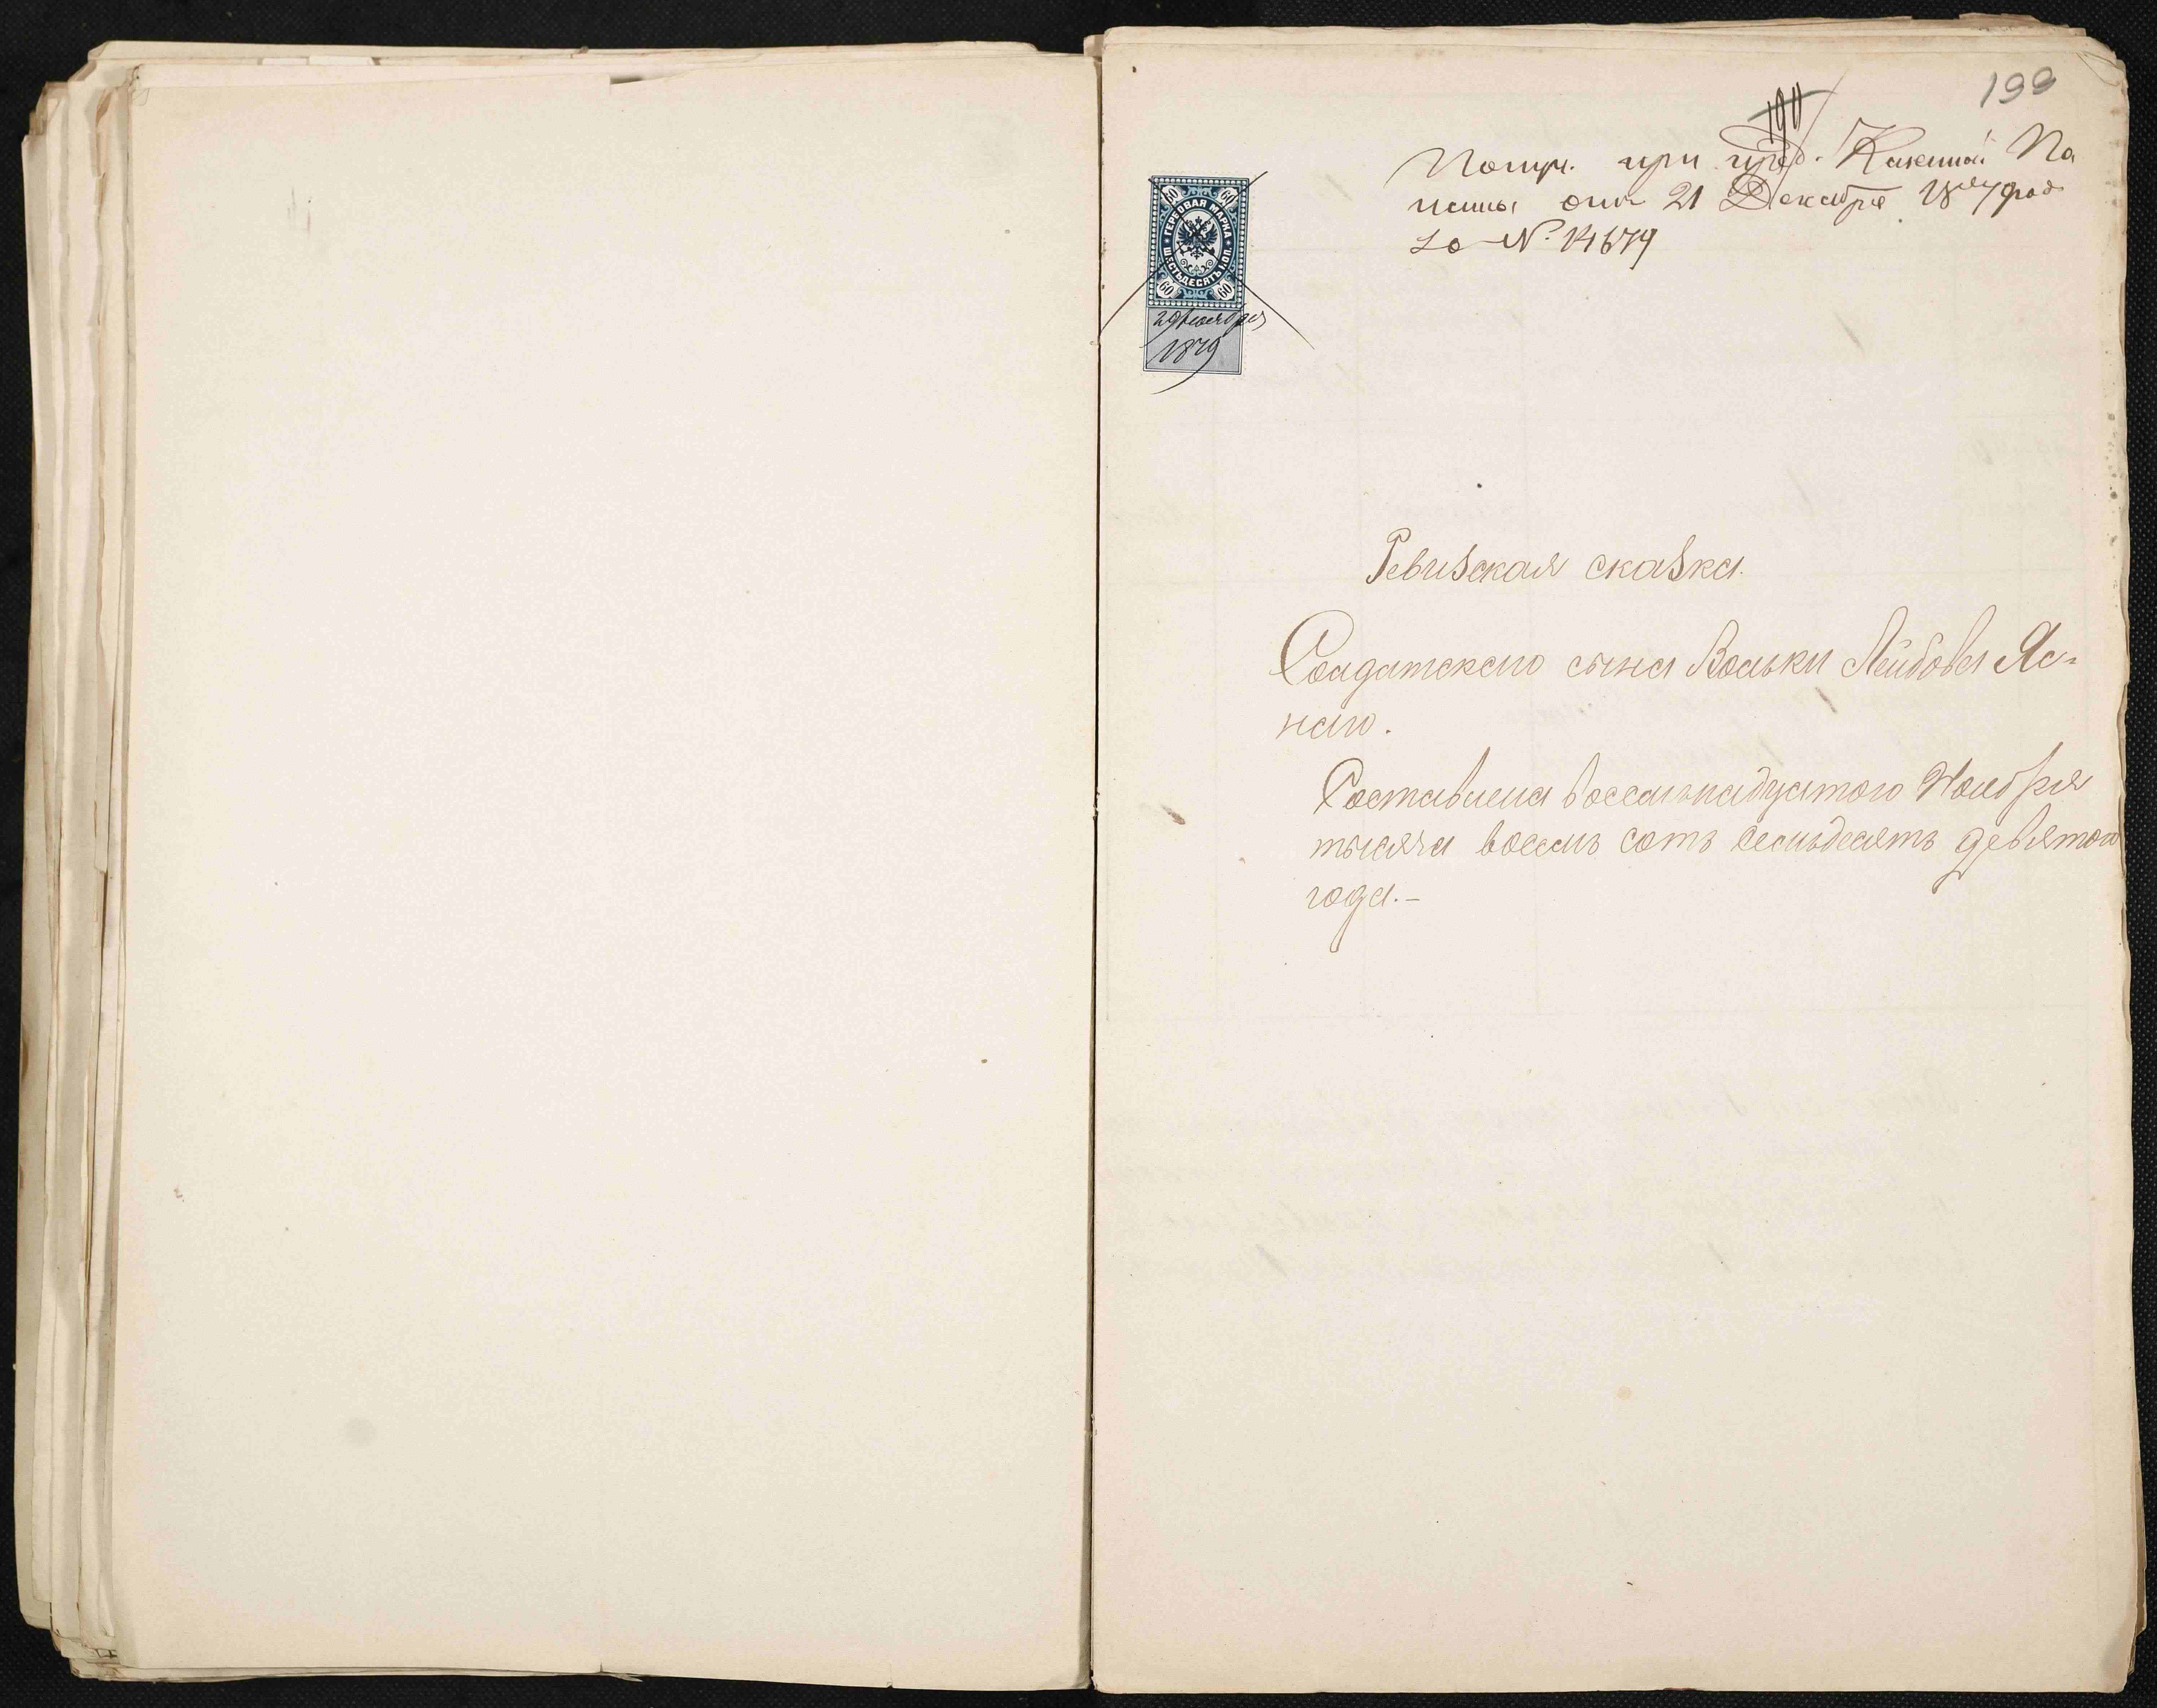 199
190
Получ. при пред. Казенной Па
латы отъ 21 Декабря 1879 года
за № 14679
60 60
ГЕРБОВАЯ МАРКА
ШЕСТЬДЕСЯТЪ КОП.
60 60
29 Ноября
1879
Ревизская сказка.
Солдатскаго сына Вольки Лейбова Яс-
наго.
Составлена восемьнадцатого Ноября
тысяча восемь сотъ семьдесятъ девятого
года.-